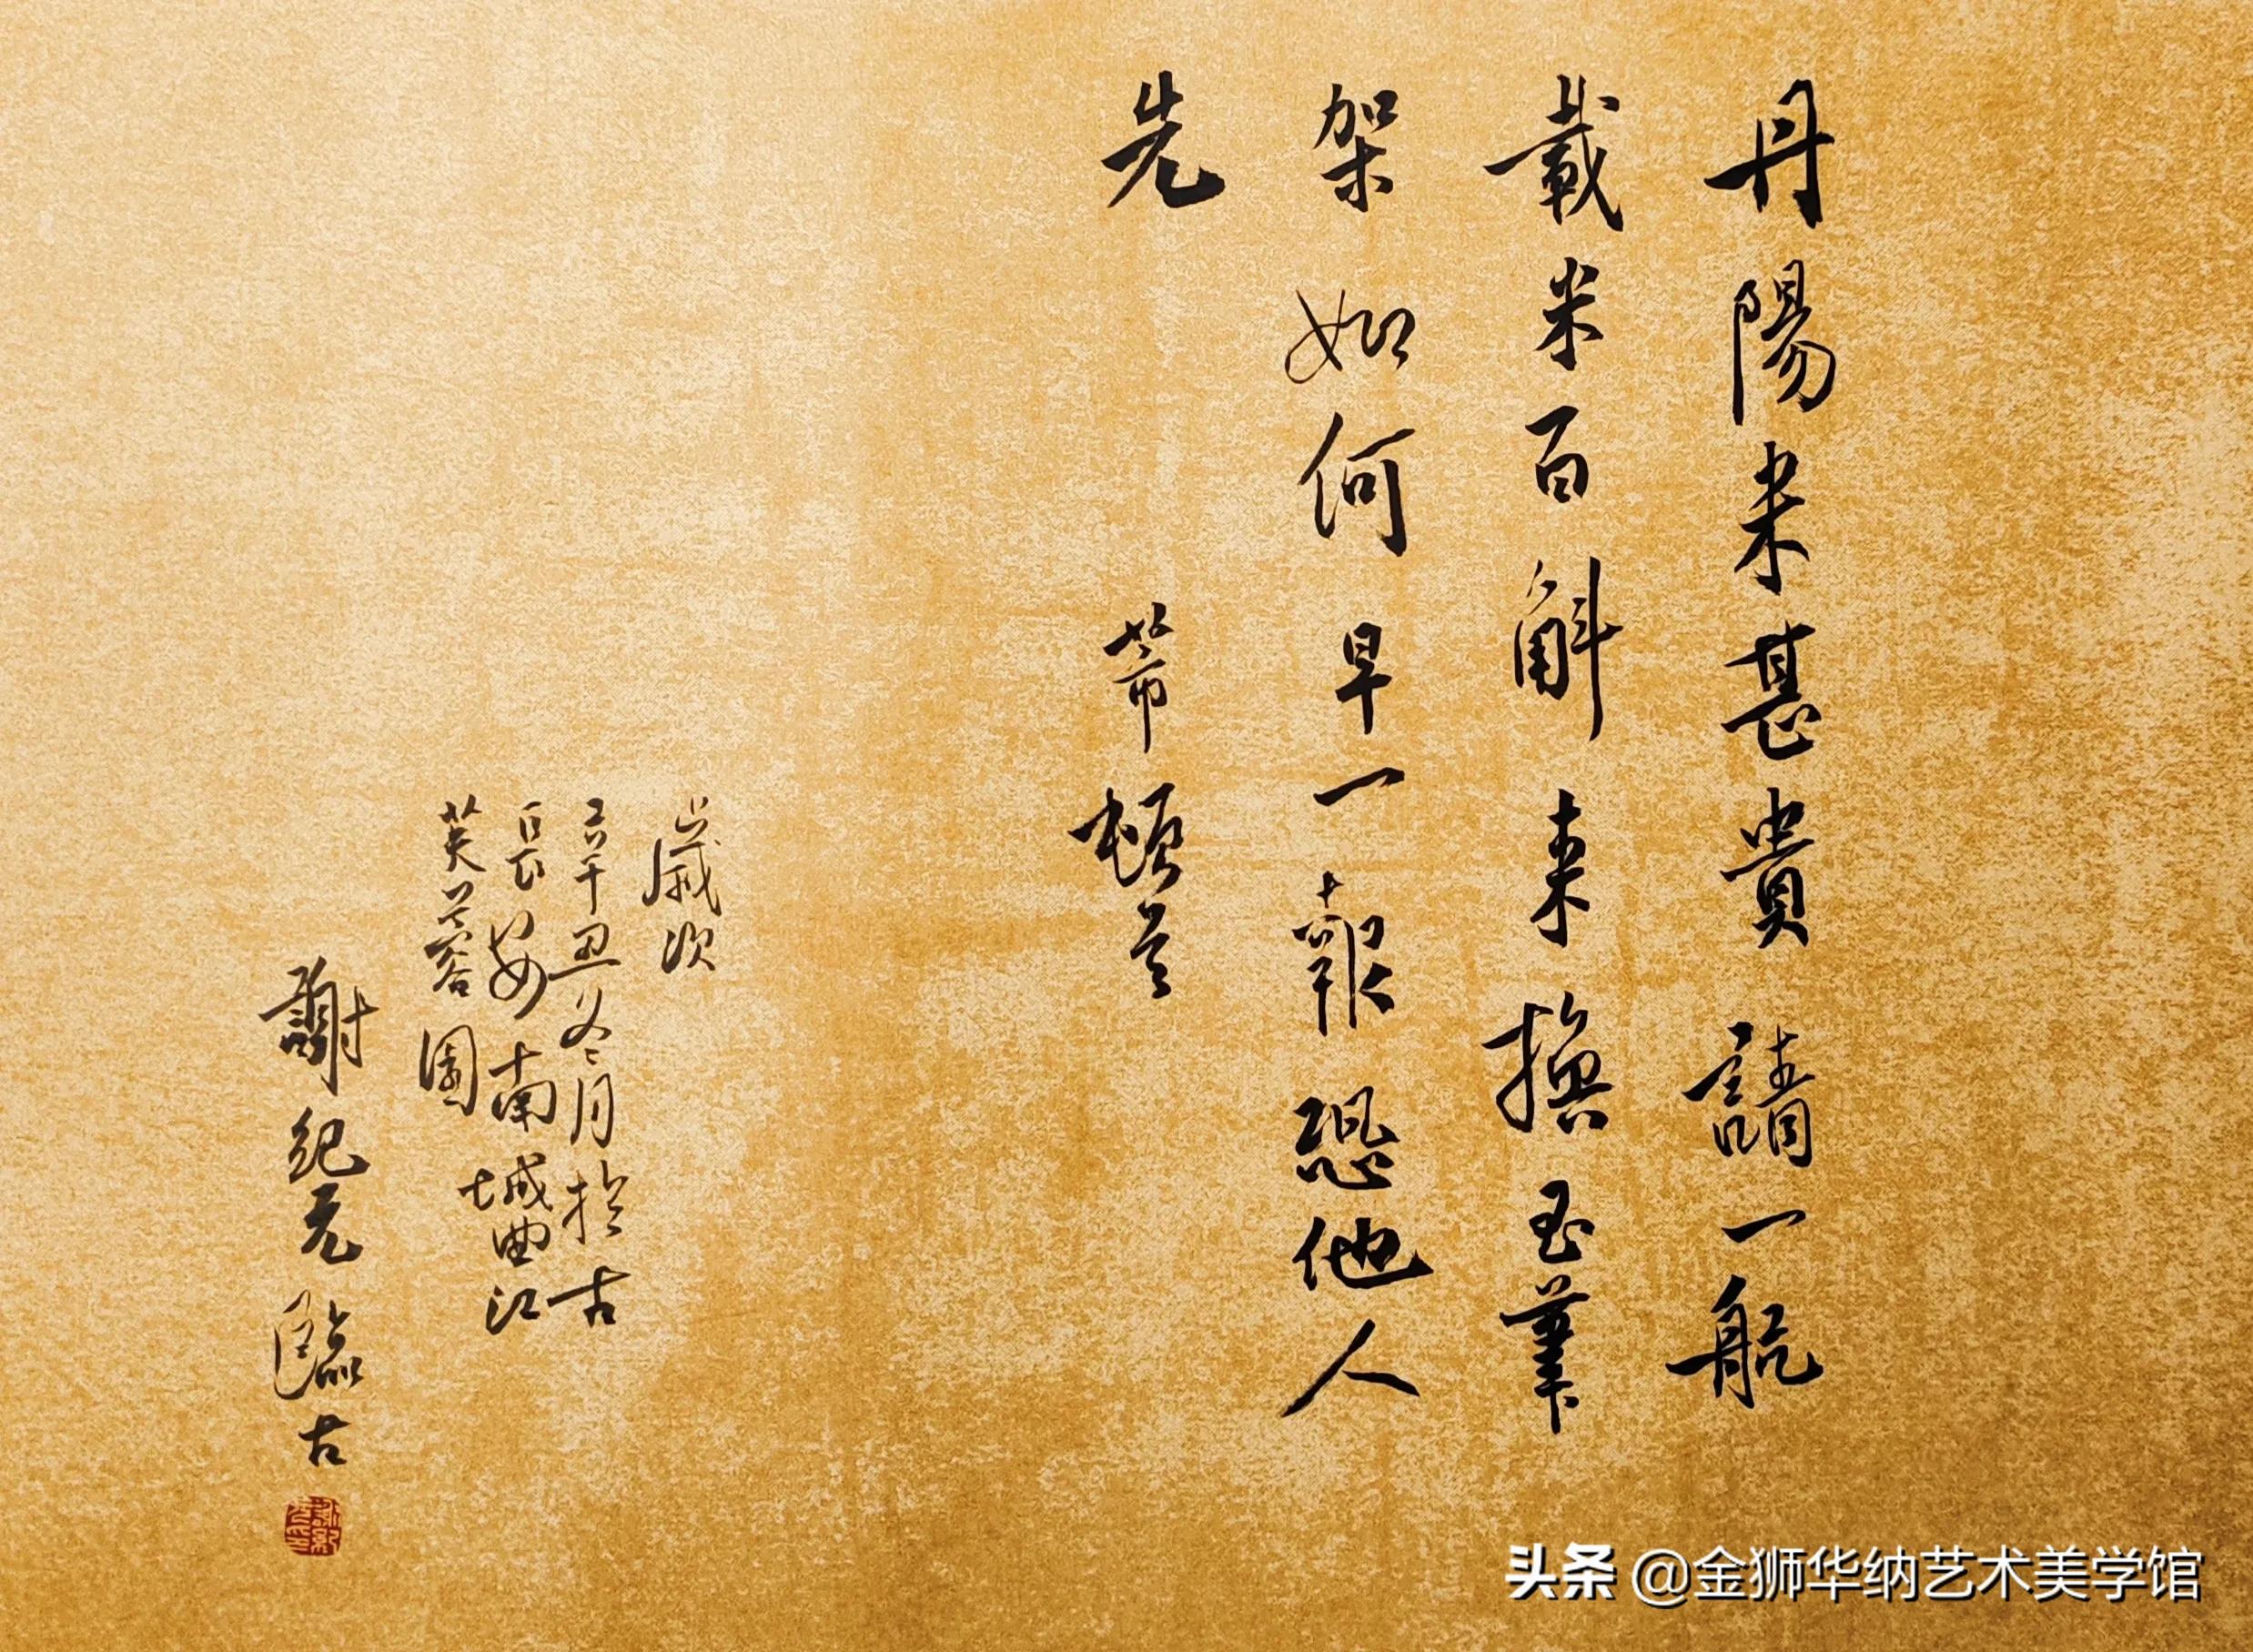 丹陽米甚貴請一航
載米百斛來換玉筆
架如何早一報恐他人
先
芾頓首
歲次
辛丑冬月於古
長安南城曲江
芙蓉園
謝紀元臨古
头条 @金狮华纳艺术美学馆